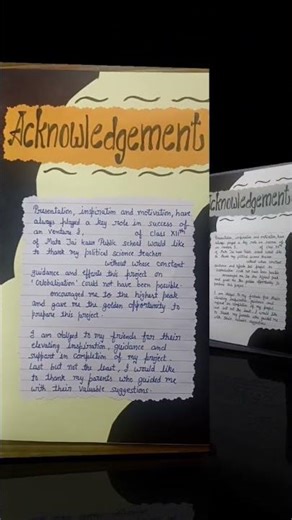 Acknowledgement
Presentation, inspiration and motivation, have
always played a key role in success of
an venture I, of class XIIth
of Mata Jai Kaur Public school would like
to thank my political science teacher
without whose constant
guidance and efforts the project on
'Globalisation' could not have been possible.
encouraged me to the highest peak
and gave me the golden opportunity to
prepare this project.
I am obliged to my friends for their
elevating inspiration, guidance and
support in completion of my project.
Last but not the least, I would like
to thank my parents who guided me
with their valuable suggestions.
Acknowledgement